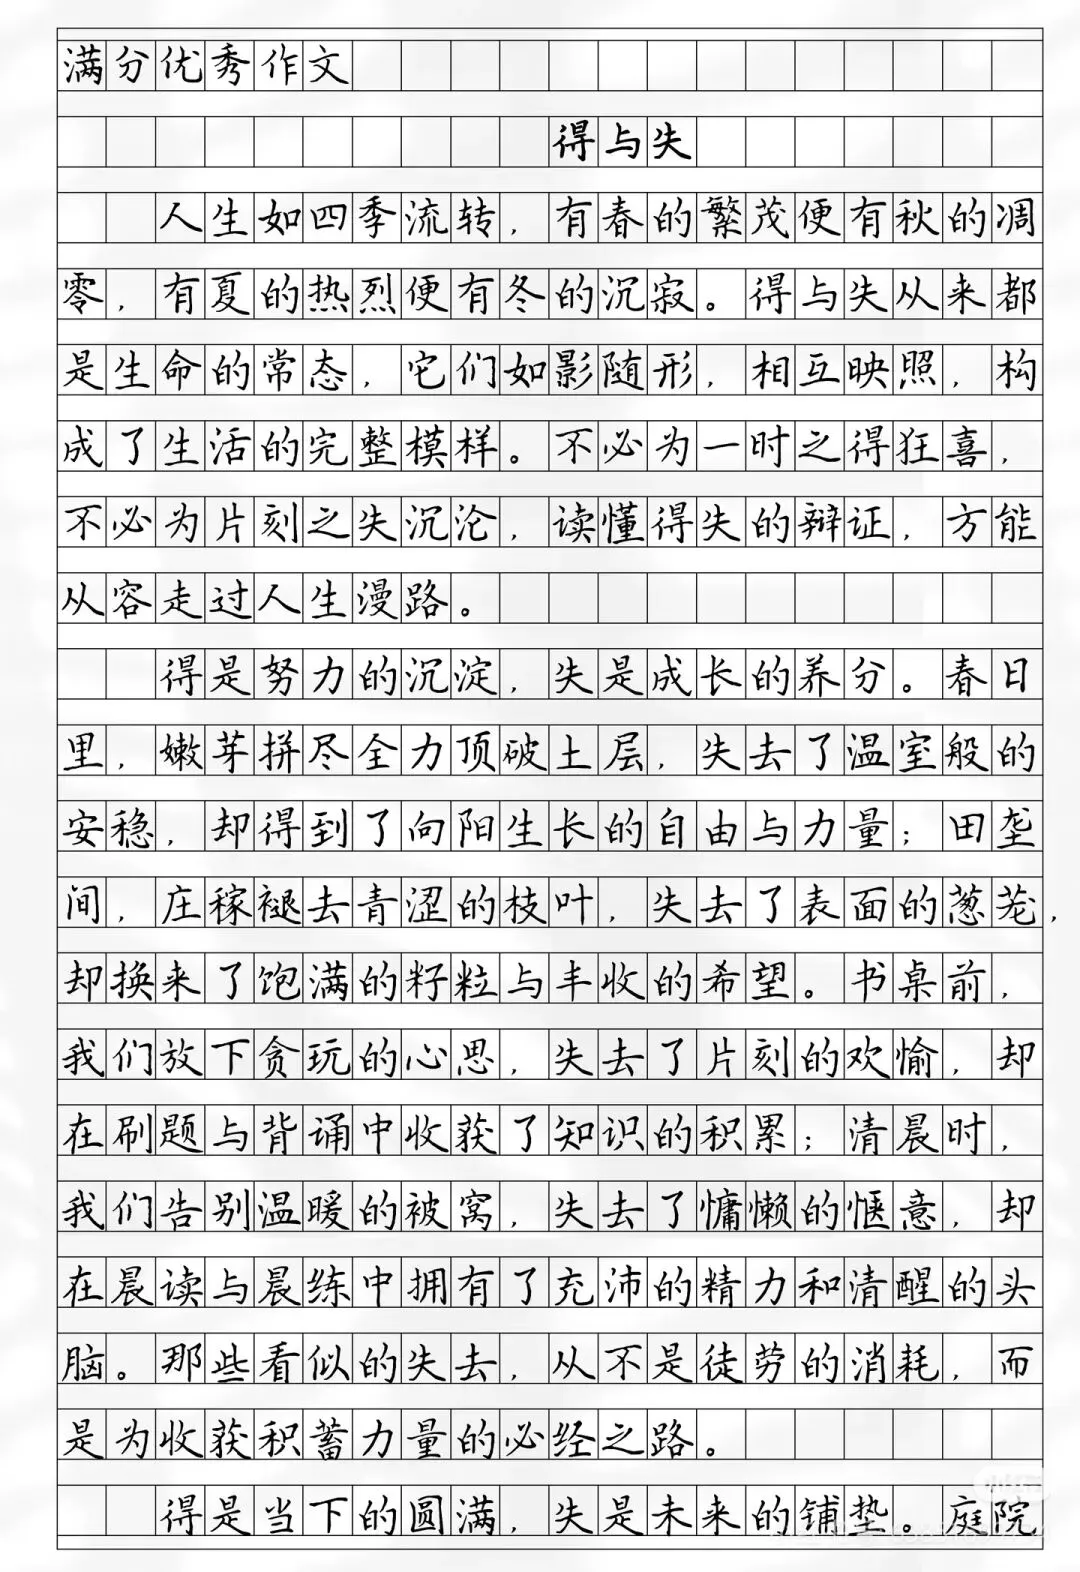 满分优秀作文
得与失
人生如四季流转，有春的繁茂便有秋的凋
零，有夏的热烈便有冬的沉寂。得与失从来都
是生命的常态，它们如影随形，相互映照，构
成了生活的完整模样。不必为一时之得狂喜，
不必为片刻之失沉沦，读懂得失的辩证，方能
从容走过人生漫路。
得是努力的沉淀，失是成长的养分。春日
里，嫩芽拼尽全力顶破土层，失去了温室般的
安稳，却得到了向阳生长的自由与力量；田垄
间，庄稼褪去青涩的枝叶，失去了表面的葱茏，
却换来了饱满的籽粒与丰收的希望。书桌前，
我们放下贪玩的心思，失去了片刻的欢愉，却
在刷题与背诵中收获了知识的积累；清晨时，
我们告别温暖的被窝，失去了慵懒的惬意，却
在晨读与晨练中拥有了充沛的精力和清醒的头
脑。那些看似的失去，从不是徒劳的消耗，而
是为收获积蓄力量的必经之路。
得是当下的圆满，失是未来的铺垫。庭院